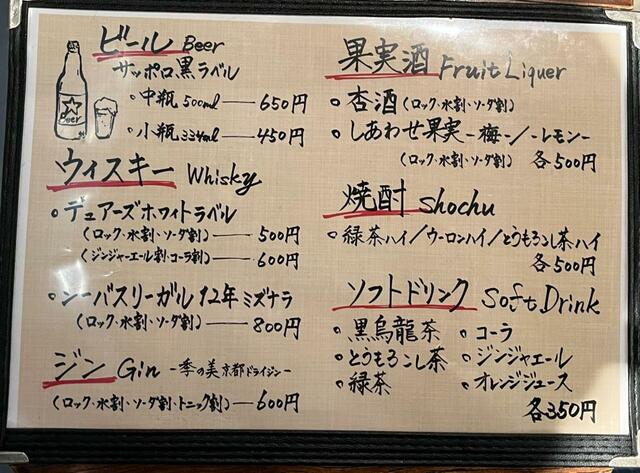 ビール Beer
サッポロ黒ラベル
・中瓶 500ml — 650円
・小瓶 334ml — 450円
Beer
ウィスキー Whisky
・デュアーズホワイトラベル
(ロック・水割・ソーダ割) — 500円
(ジンジャーエール割・コーラ割) — 600円
・シーバスリーガル12年ミズナラ
(ロック・水割・ソーダ割) — 800円
ジン Gin -季の美 京都ドライジン-
(ロック・水割・ソーダ割・トニック割) — 600円
果実酒 Fruit Liquer
・杏酒 (ロック・水割・ソーダ割)
・しあわせ果実 -梅-/-レモン-
(ロック・水割・ソーダ割) 各500円
焼酎 Shochu
・緑茶ハイ/ウーロンハイ/とうもろこし茶ハイ
各500円
ソフトドリンク Soft Drink
・黒烏龍茶 ・コーラ
・とうもろこし茶 ・ジンジャエール
・緑茶 ・オレンジジュース
各350円